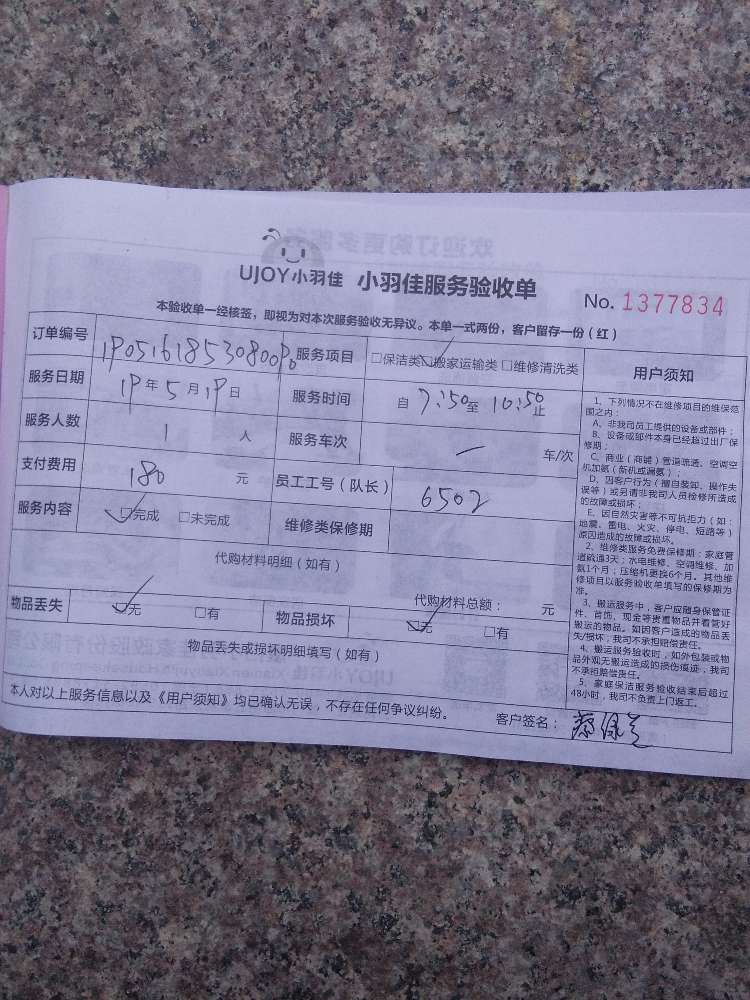 UJOY小羽佳 小羽佳服务验收单
No. 1377834
本验收单一经核签，即视为对本次服务验收无异议。本单一式两份，客户留存一份（红）
订单编号 服务项目 □保洁类 ☑搬家运输类 □维修清洗类
服务日期 19年5月19日 服务时间 自 7:50 至 10:50 止
服务人数 1 人 服务车次 一 车/次
支付费用 180 元 员工工号（队长） 6502
服务内容 ☑完成 □未完成 维修类保修期
代购材料明细（如有）
代购材料总额： 元
物品丢失 ☑无 □有 物品损坏 ☑无 □有
物品丢失或损坏明细填写（如有）
本人对以上服务信息以及《用户须知》均已确认无误，不存在任何争议纠纷。 客户签名：
用户须知
1、下列情况不在维修项目的维保范
围之内：
A、非我司员工提供的设备或部件；
B、设备或部件本身已经超过出厂保
修期；
C、商业（商铺）管道疏通、空调空
机加氨（新机或漏氨）；
D、因客户行为（擅自装卸、操作失
误等）或另请非我司人员检修所造成
的故障或损坏；
E、因自然灾害等不可抗拒力（如：
地震、雷电、火灾、停电、短路等）
原因造成的故障或损坏。
2、维修类服务免费保修期：家庭管
道疏通3天；水电维修、空调维修、加
氨1个月；压缩机更换6个月。其他维
修项目以服务验收单填写的保修期为
准。
3、搬运服务中，客户应随身保管证
件、首饰、现金等贵重物品并看管好
搬运的物品。如因客户造成的物品丢
失/损坏；我司不承担赔偿责任。
4、搬运服务验收时，如外包装或物
品外观无搬运造成的损伤痕迹，我司
不承担赔偿责任。
5、家庭保洁服务验收结束后超过
48小时，我司不负责上门返工。